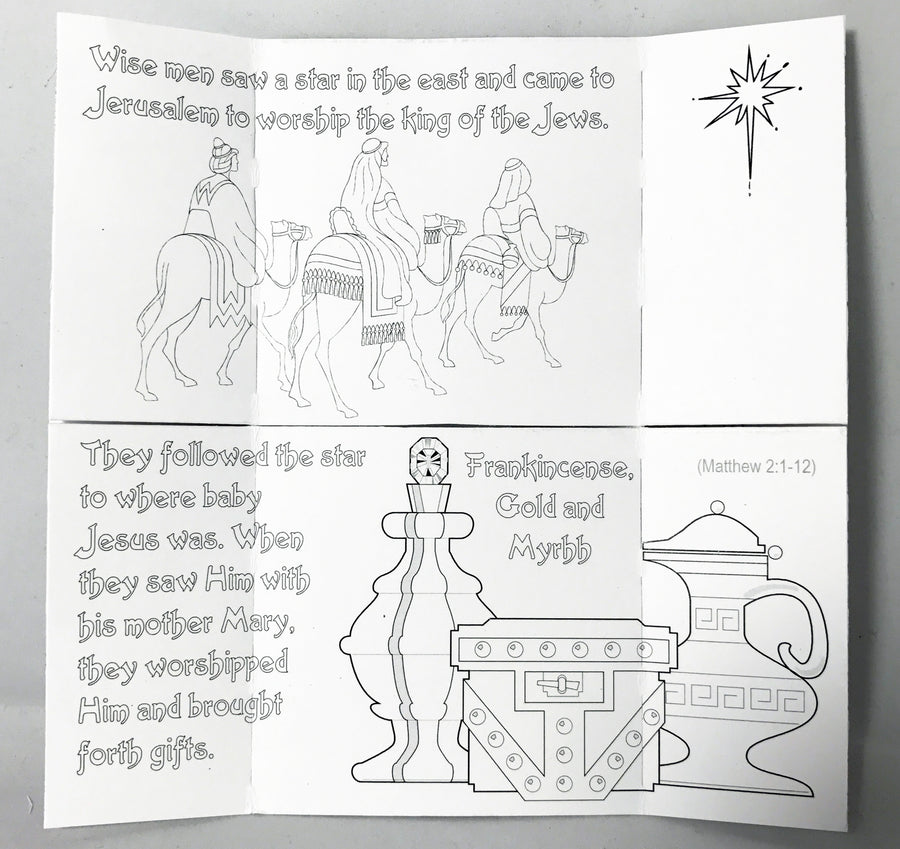 Wise men saw a star in the east and came to
Jerusalem to worship the king of the Jews.
They followed the star
to where baby
Jesus was. When
they saw Him with
his mother Mary,
they worshipped
Him and brought
forth gifts.
Frankincense,
Gold and
Myrhh
(Matthew 2:1-12)